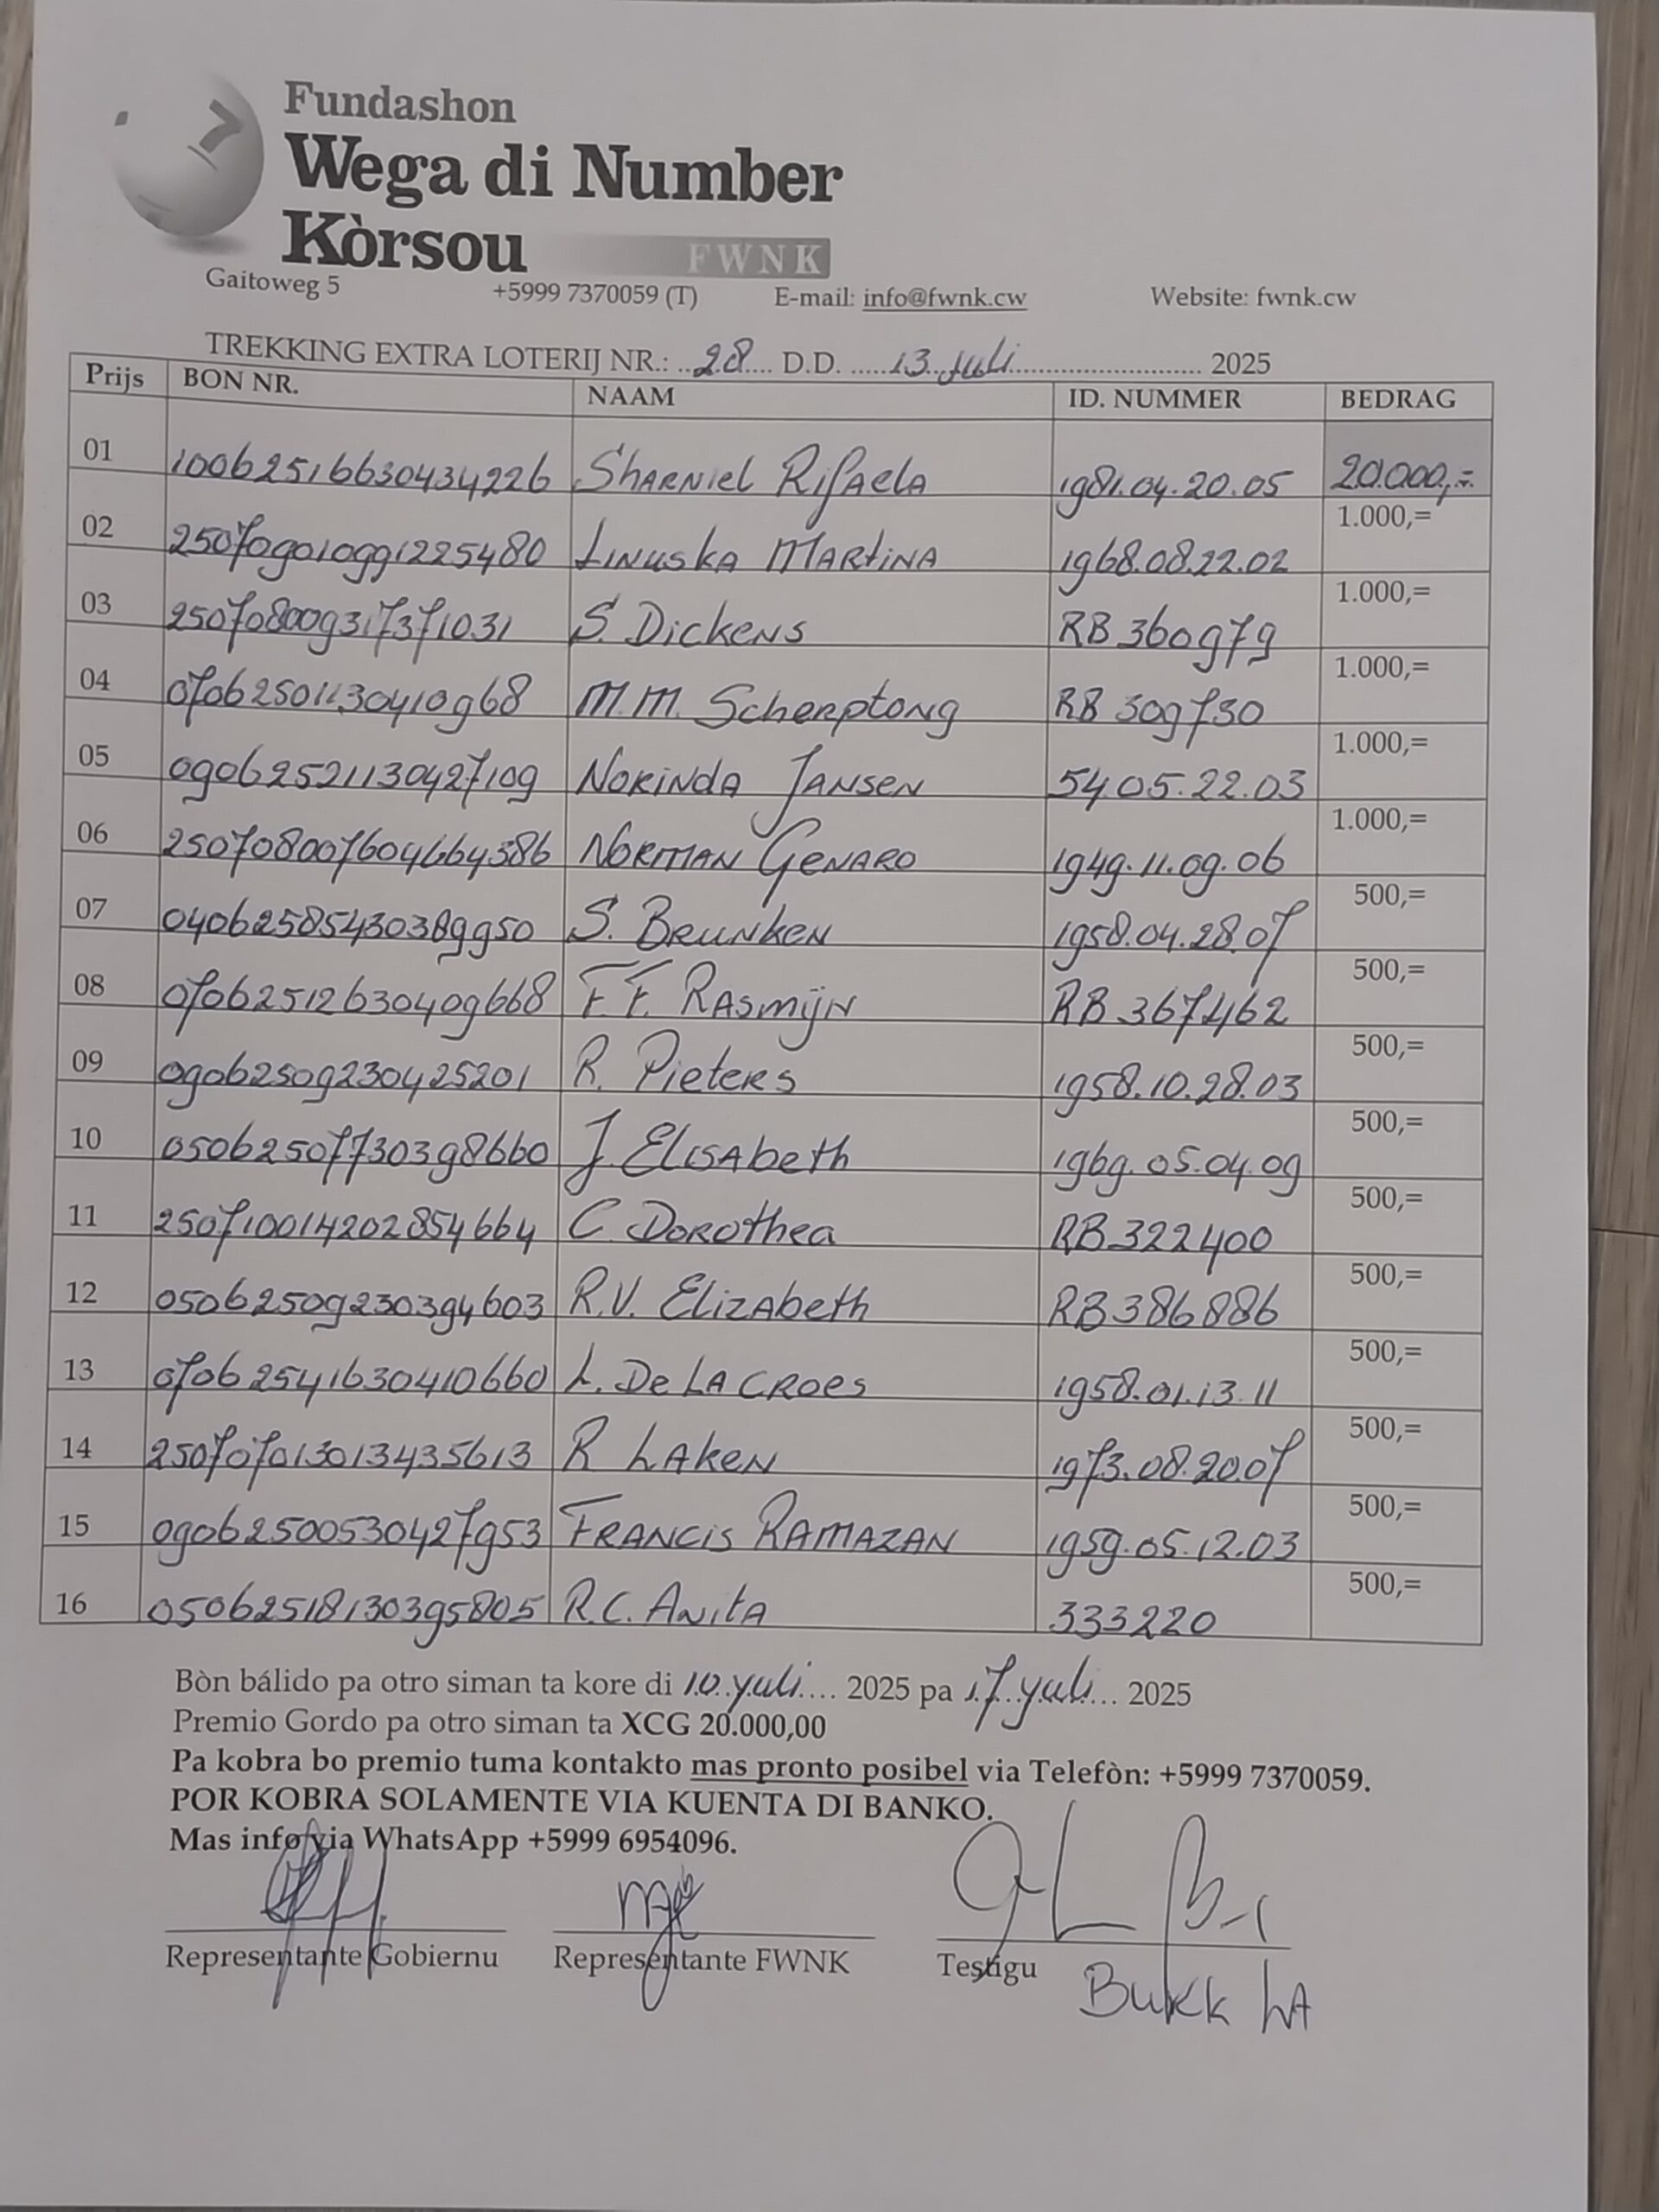 Fundashon
Wega di Number
Kòrsou
FWNK
Gaitoweg 5 +5999 7370059 (T) E-mail: info@fwnk.cw Website: fwnk.cw
TREKKING EXTRA LOTERIJ NR.: ..28.... D.D. ......13.juli............................ 2025
Prijs BON NR. NAAM ID. NUMMER BEDRAG
01 10062516630434226 Sharniel Rifaela 1981.04.20.05 20.000,=
02 250709010991225480 Linuska Martina 1968.08.22.02 1.000,=
03 250708009317371031 S. Dickens RB 360979 1.000,=
04 07062501130410968 M.M. Scherptong RB 309730 1.000,=
05 09062521130427109 Norinda Jansen 54.05.22.03 1.000,=
06 250708007604664386 Norman Genaro 1949.11.09.06 1.000,=
07 04062585430389950 S. Brunken 1958.04.28.07 500,=
08 07062512630409668 F.F. Rasmijn RB 367462 500,=
09 09062509230425201 R. Pieters 1958.10.28.03 500,=
10 05062507730398660 J. Elisabeth 1969.05.04.09 500,=
11 250710014202854664 C. Dorothea RB 322400 500,=
12 05062509230394603 R.V. Elizabeth RB 386886 500,=
13 07062541630410660 L. De La Croes 1958.01.13.11 500,=
14 250707013013435613 R Laken 1973.08.20.07 500,=
15 09062500530427953 Francis Ramazan 1959.05.12.03 500,=
16 05062518130395805 R.C. Anita 333220 500,=
Bòn bálido pa otro siman ta kore di 10..yuli.... 2025 pa 17.yuli... 2025
Premio Gordo pa otro siman ta XCG 20.000,00
Pa kobra bo premio tuma kontakto mas pronto posibel via Telefòn: +5999 7370059.
POR KOBRA SOLAMENTE VIA KUENTA DI BANKO.
Mas info via WhatsApp +5999 6954096.
Representante Gobiernu Representante FWNK Testigu